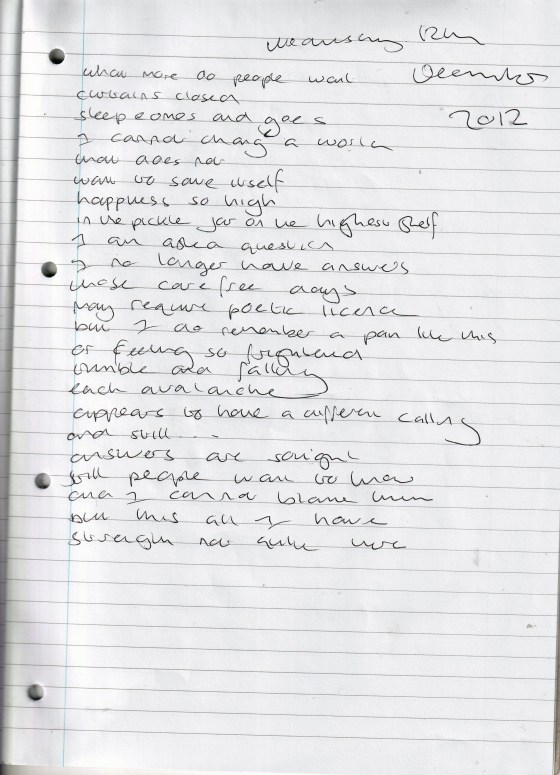 Wednesday 12th
December
2012
what more do people want
curtains closed
sleep comes and goes
I cannot change a world
that does not
want to save itself
happiness so high
in the pickle jar on the highest shelf
I am asked a question
I no longer have answers
those care free days
may require poetic licence
but I do remember a pain like this
of feeling so frightened
tumble and falling
each avalanche
appears to have a different calling
and still....
answers are sought
still people want to know
and I cannot blame them
but this all I have
strength not quite